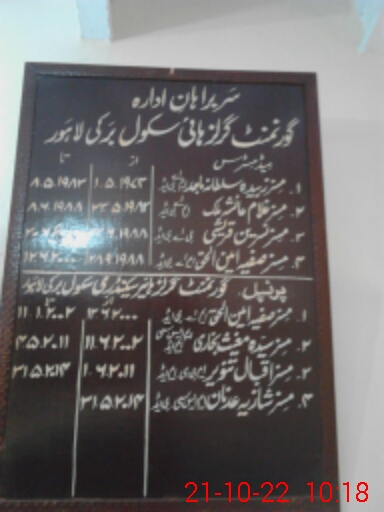 سربراہان ادارہ
گورنمنٹ گرلز ہائی سکول برکی لاہور
ہیڈمسٹریس از تا
۱. مسز زبیدہ سلطانہ امجد ۱.۵.۱۹۷۳ ۸.۵.۱۹۸۲
۲. مسز غلام عائشہ ملک ۸.۶.۱۹۸۸
۳. مسز نسرین قریشی بی اے بی ایڈ
۴. مسز صفیہ امین الحق
پرنسپل گورنمنٹ گرلز ہائیر سیکنڈری سکول برکی لاہور
۱. مسز صفیہ امین الحق
۲. مسز سیدہ مغیث بخاری ۱۱.۶.۲۰۰۲ ۴.۵.۲۰۱۱
۳. مسز اقبال تنویر ۱.۶.۲۰۱۱ ۳۱.۵.۲۰۱۴
۴. مسز شازیہ عدنان ۳۱.۵.۲۰۱۴
21-10-22 10:18